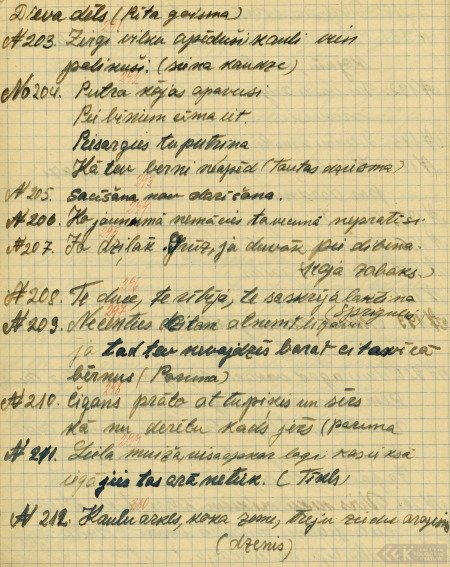 Dieva dēls (Rīta gaisma)
№ 203. Zirgi vilku apēduši kauli vien
palikuši. (siena kaudze)
No 204. Putra kājas apavusi
Pie bērniem cima iet.
Piesargies tu putriņa
Kā tev berni neapēd (Tautas dziesma)
№ 205. Sacīšana nav darīšana.
№ 206. Ko jaunumā nemācies ta vecumā nepratīsi.
№ 207. Jo dziļāk grūž, jo duvāk pie dibina.
Kāja zābakā)
№ 208. Te duce, te rībēja, te saskrēja lakatiņa
(Spriguļi)
№ 209. Necenties citam atņemt līgavu
jo tad tev nevajdzēs barat cita
bērnus (Paruna)
№ 210. Čigans prāto attupies un sērs
kā nu derētu kads jērs (paruna
№ 211. Liela muiža visapkar logi kas iekšā
iegājis tas arā netiek. (Tīkls)
№ 212. Kaula arkls, koka zeme, treju
(dzenis)